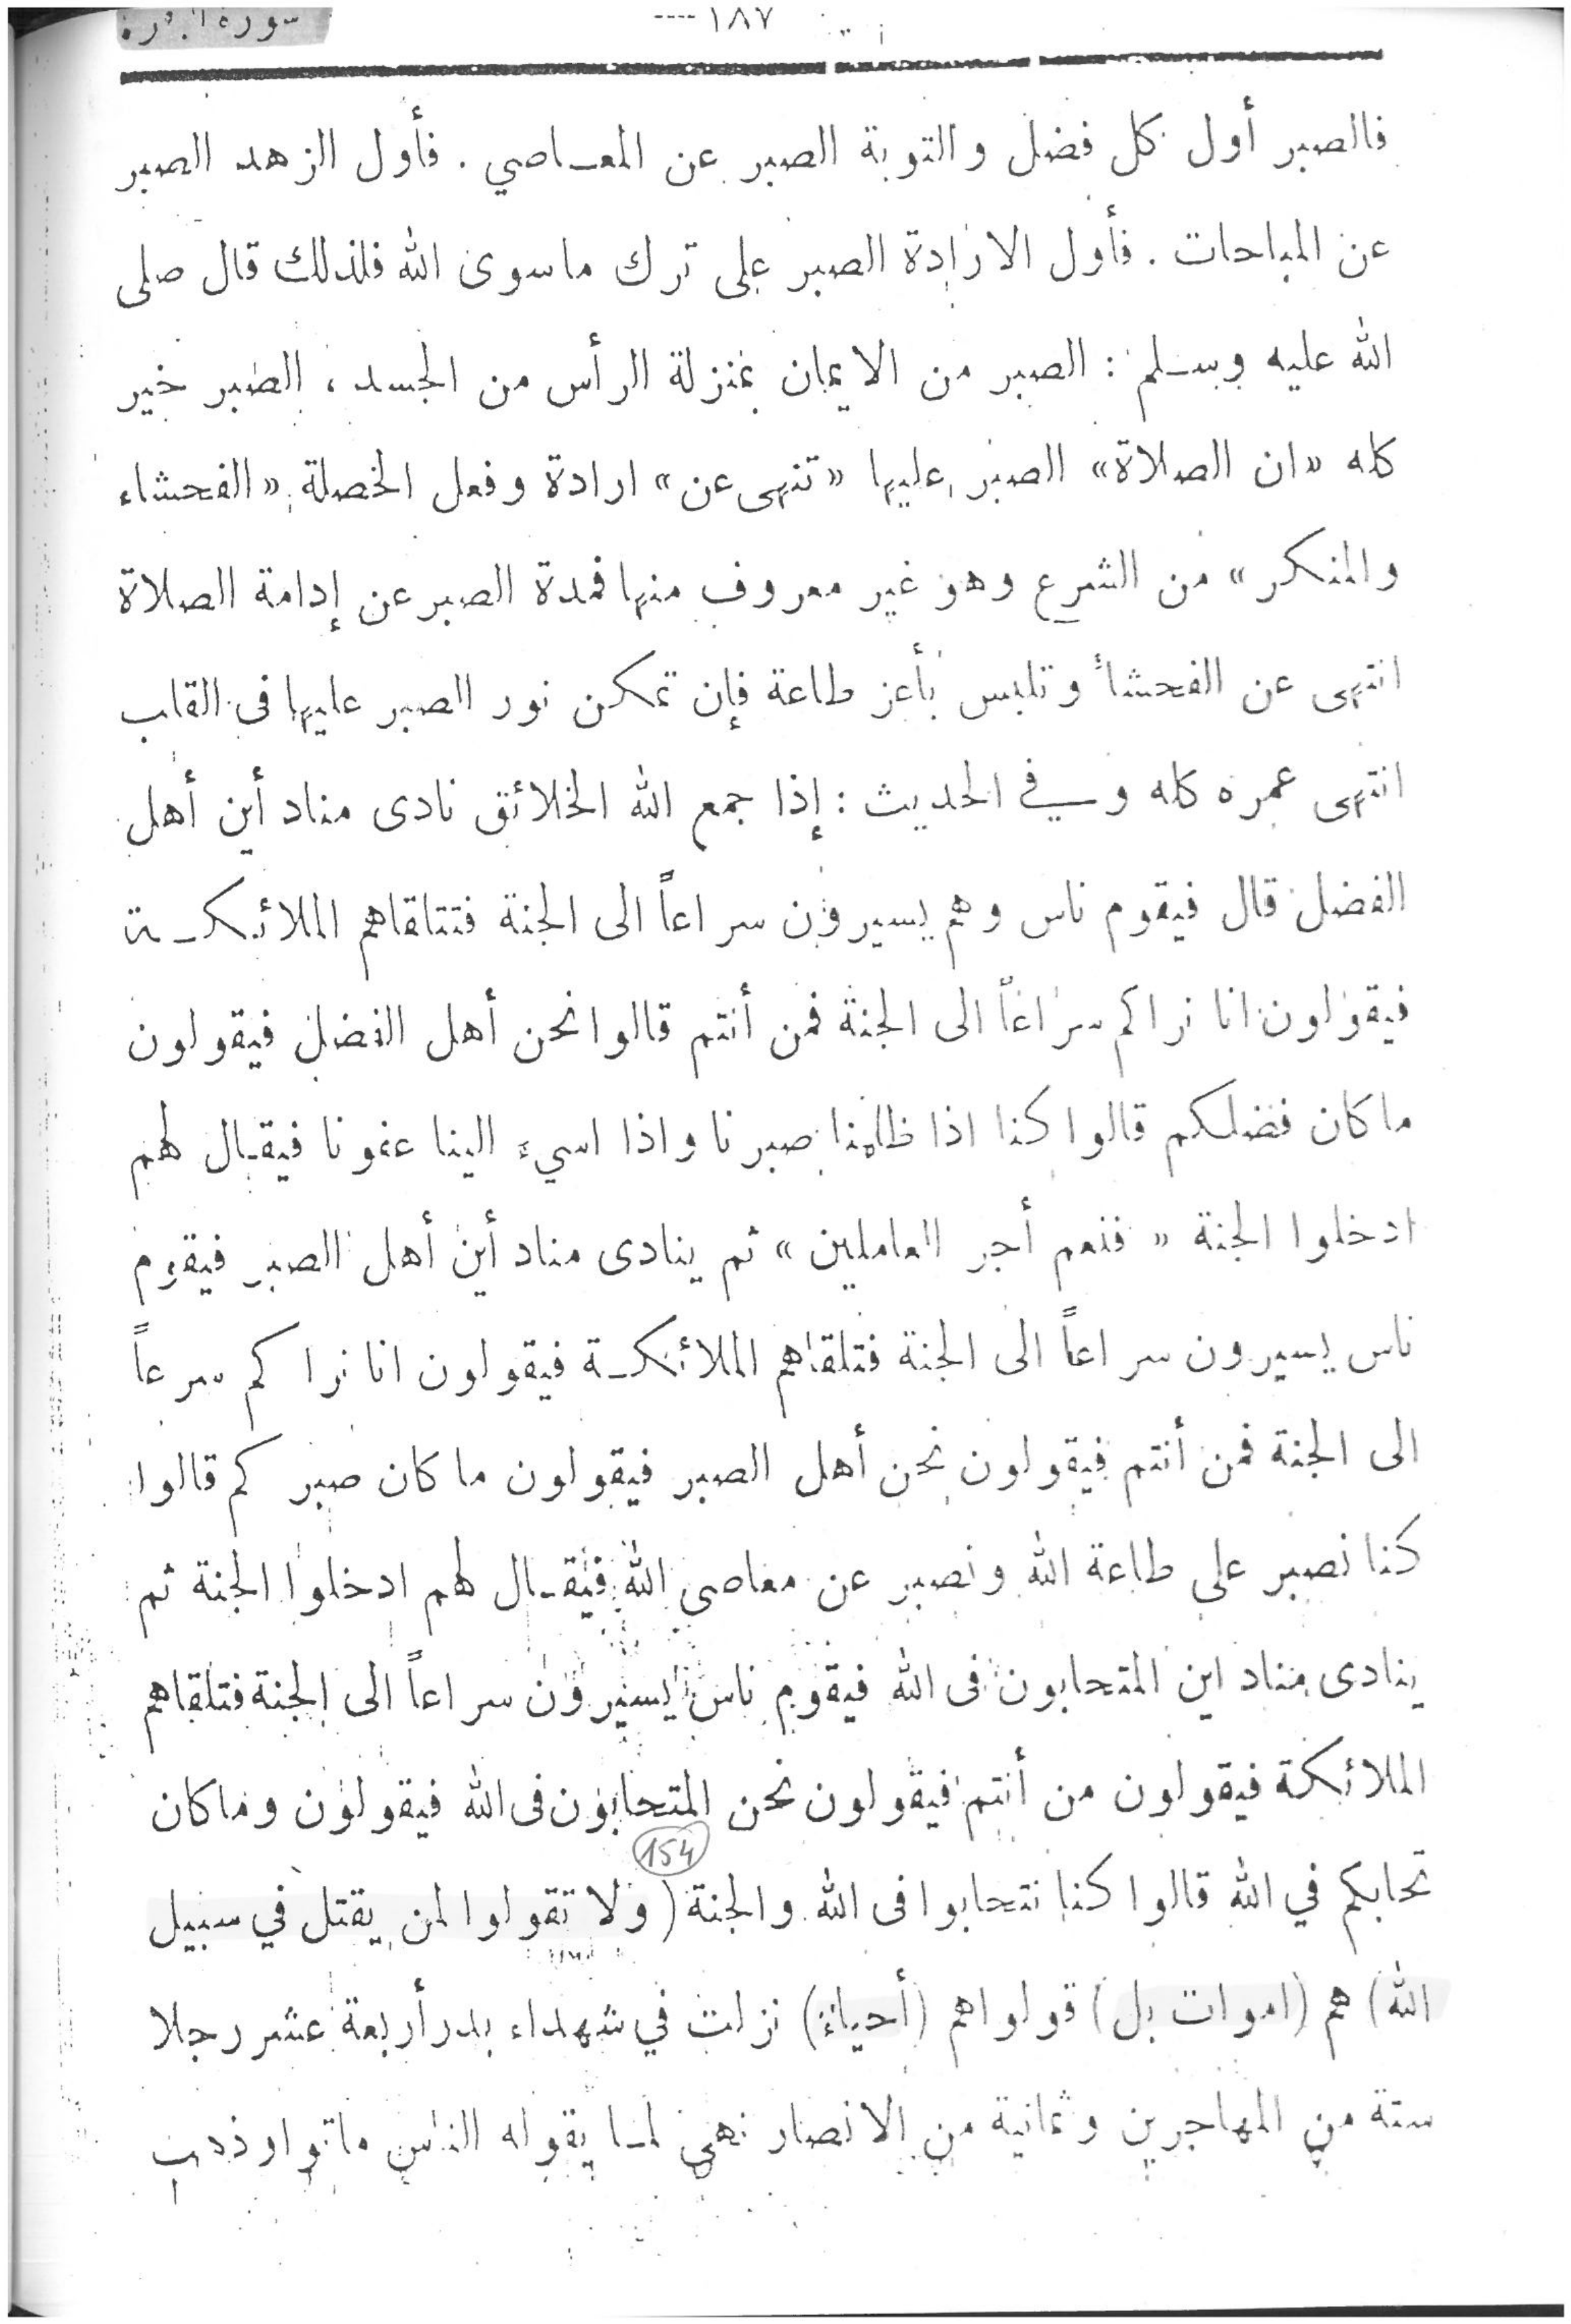 ١٨٧
سورة البقرة
فالصبر أول كل فضل والتوبة الصبر عن المعاصي . فأول الزهد الصبر
عن المباحات . فأول الارادة الصبر على ترك ماسوى الله فلذلك قال صلى
الله عليه وسلم : الصبر من الايمان بمنزلة الرأس من الجسد ، الصبر خير
كله «ان الصلاة» الصبر عليها «تنهى عن» ارادة وفعل الخصلة «الفحشاء
والمنكر» من الشرع وهو غير معروف منها فمدة الصبر عن إدامة الصلاة
انتهى عن الفحشأ وتلبس بأعز طاعة فإن تمكن نور الصبر عليها فى القلب
انتهى عمره كله وفي الحديث : إذا جمع الله الخلائق نادى مناد أين أهل
الفضل قال فيقوم ناس وهم يسيرون سراعاً الى الجنة فتتلقاهم الملائكة
فيقولون انا نراكم سراعاً الى الجنة فمن أنتم قالوا نحن أهل الفضل فيقولون
ما كان فضلكم قالوا كنا اذا ظلمنا صبرنا واذا اسيء الينا عفونا فيقال لهم
ادخلوا الجنة « فنعم أجر العاملين » ثم ينادى مناد أين أهل الصبر فيقوم
ناس يسيرون سراعاً الى الجنة فتلقاهم الملائكة فيقولون انا نراكم سرعاً
الى الجنة فمن أنتم فيقولون نحن أهل الصبر فيقولون ما كان صبركم قالوا
كنا نصبر على طاعة الله ونصبر عن معاصى الله فيقال لهم ادخلوا الجنة ثم
ينادى مناد اين المتحابون فى الله فيقوم ناس يسيرون سراعاً الى الجنة فتلقاهم
الملائكة فيقولون من أنتم فيقولون نحن المتحابون فى الله فيقولون وما كان
154
تحابكم في الله قالوا كنا نتحابوا فى الله والجنة (ولا تقولوا لمن يقتل في سبيل
الله) هم (اموات بل) قولوا هم (أحياء) نزلت في شهداء بدر أربعة عشر رجلا
ستة من المهاجرين وثمانية من الانصار نهي لما يقوله الناس ماتوا وذهب